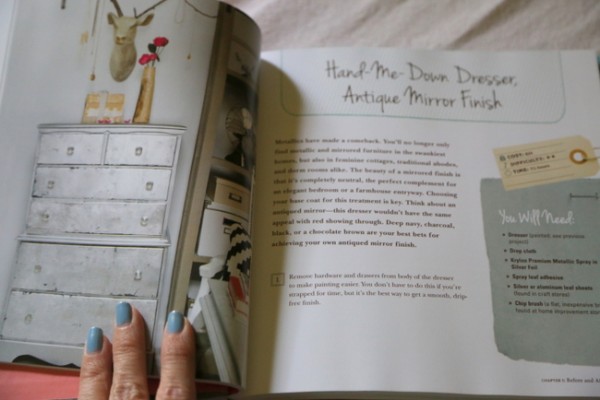 Hand-Me-Down Dresser,
Antique Mirror Finish
Metallics have made a comeback. You'll no longer only
find metallic and mirrored furniture in the swankiest
homes, but also in feminine cottages, traditional abodes,
and dorm rooms alike. The beauty of a mirrored finish is
that it's completely neutral, the perfect complement for
an elegant bedroom or a farmhouse entryway. Choosing
your base coat for this treatment is key. Think about an
antiqued mirror—this dresser wouldn't have the same
appeal with red showing through. Deep navy, charcoal,
black, or a chocolate brown are your best bets for
achieving your own antiqued mirror finish.
1 Remove hardware and drawers from body of the dresser
to make painting easier. You don't have to do this if you're
strapped for time, but it's the best way to get a smooth, drip-
free finish.
You Will Need:
Dresser
Drop cloth
Krylon Premium Metallic Spray in
Silver Foil
Spray leaf adhesive
Silver or aluminum leaf sheets
(found in craft stores)
Chip brush (a flat, inexpensive
found at home improvement
Before and